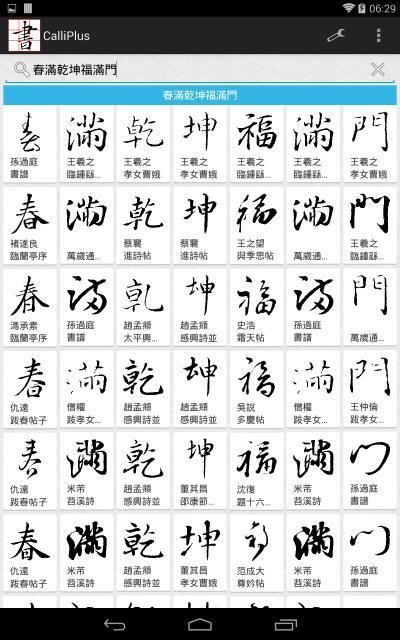 06:29
書 CalliPlus
春滿乾坤福滿門
春滿乾坤福滿門
春 滿 乾 坤 福 滿 門
孫過庭 王羲之 王羲之 王羲之 王羲之 王羲之 王羲之
書譜 臨鍾繇... 孝女曹娥 孝女曹娥 臨鍾繇... 臨鍾繇... 孝女曹娥
春 滿 乾 坤 福 滿 門
褚遂良 蔡襄 蔡襄 王之望 王羲之
臨蘭亭序 萬歲通... 進詩帖 進詩帖 與季思帖 萬歲通... 臨鍾繇...
春 滿 乾 坤 福 滿 門
馮承素 孫過庭 趙孟頫 趙孟頫 史浩 孫過庭
臨蘭亭序 書譜 太平興... 感興詩並 霜天帖 書譜 萬歲通...
春 滿 乾 坤 福 滿 門
仇遠 僧權 趙孟頫 趙孟頫 吳說 僧權 王仲倫
跋春帖子 跋孝女... 感興詩並 感興詩並 多慶帖 跋孝女... 跋孝女...
春 滿 乾 坤 福 滿 門
仇遠 米芾 趙孟頫 董其昌 沈復 米芾 孫過庭
跋春帖子 苕溪詩 感興詩並 邵康節... 題十六... 苕溪詩 書譜
春 滿 乾 坤 福 滿 門
仇遠 米芾 趙孟頫 董其昌 范成大 米芾 孫過庭
跋春帖子 苕溪詩 感興詩並 孝女曹娥 尊妗帖 苕溪詩 書譜